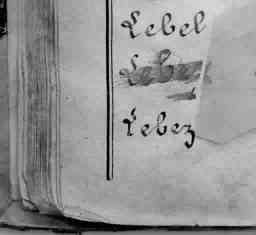 Lebel
Lebez